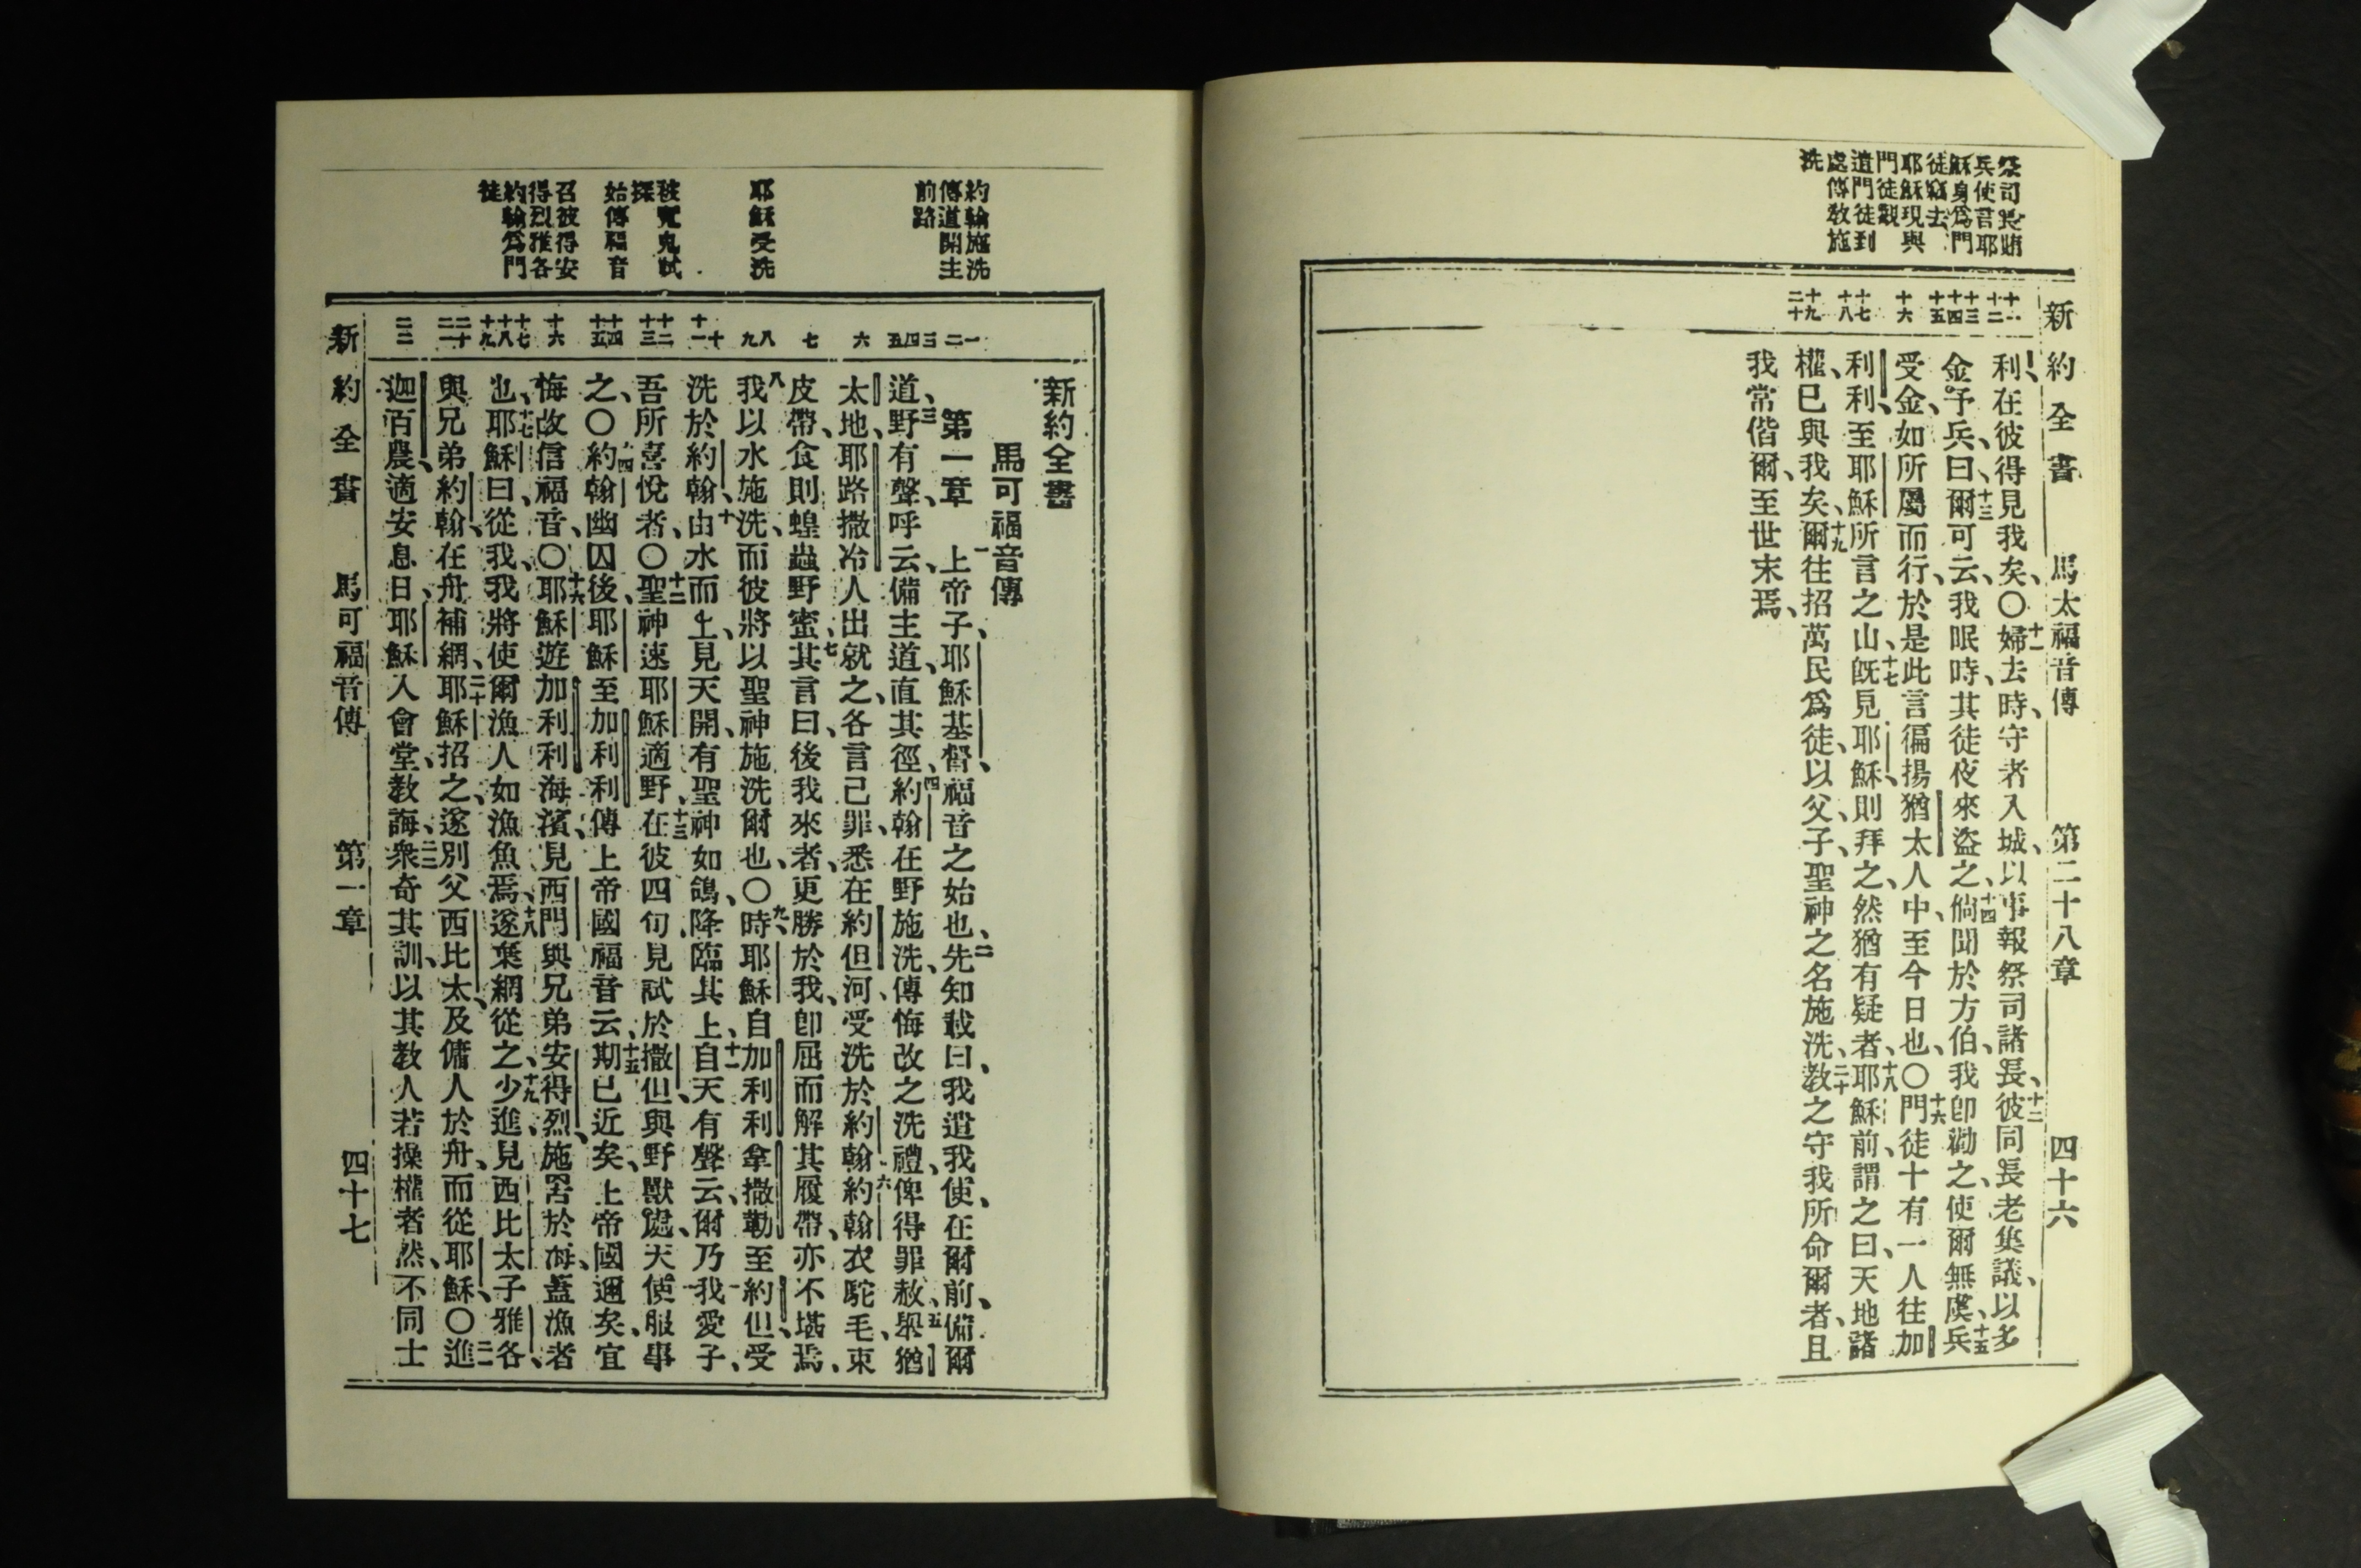 新約全書 馬太福音傳 第二十八章 四十六
祭司長賄
兵使言耶
穌身爲門
徒竊去
耶穌現與
門徒觀
遣門徒到
處傳教施
洗
十一
十二
十三
十四
十五
十六
十七
十八
十九
二十
利、在彼得見我矣、〇十一婦去時、守者入城、以事報祭司諸長、十二彼同長老集議、以多
金予兵、曰、十三爾可云、我眠時、其徒夜來盜之、十四倘聞於方伯、我卽勸之、使爾無虞、十五兵
受金、如所屬而行、於是此言徧揚猶太人中、至今日也、〇十六門徒十有一人往加
利利、至耶穌所言之山、十七旣見耶穌、則拜之、然猶有疑者、十八耶穌前、謂之曰、天地諸
權、已與我矣、十九爾往招萬民爲徒、以父、子、聖神之名施洗、二十教之守我所命爾者、且
我常偕爾、至世末焉、
約翰施洗
傳道開主
前路
耶穌受洗
被魔鬼試
探
始傳福音
召彼得安
得烈雅各
約翰爲門
徒
一
二
三
四
五
六
七
八
九
十
十一
十二
十三
十四
十五
十六
十七
十八
十九
二十
二一
二二
新約全書
馬可福音傳
第一章 一上帝子、耶穌基督、福音之始也、二先知載曰、我遣我使、在爾前、備爾
道、三野有聲、呼云、備主道、直其徑、四約翰在野施洗、傳悔改之洗禮、俾得罪赦、五舉猶
太地、耶路撒冷人出就之、各言己罪、悉在約但河、受洗於約翰、六約翰衣駝毛、束
皮帶、食則蝗蟲野蜜、七其言曰、後我來者、更勝於我、卽屈而解其履帶、亦不堪焉、
八我以水施洗、而彼將以聖神施洗爾也、〇九時、耶穌自加利利拿撒勒至約但、受
洗於約翰、十由水而上、見天開、有聖神如鴿、降臨其上、十一自天有聲云、爾乃我愛子、
吾所喜悅者、〇十二聖神速耶穌適野、十三在彼四旬、見試於撒但、與野獸處、天使服事
之、〇十四約翰幽囚後、耶穌至加利利、傳上帝國福音云、十五期已近矣、上帝國邇矣、宜
悔故信福音、〇十六耶穌遊加利利海濱、見西門、與兄弟安得烈、施罟於海、蓋漁者
也、十七耶穌曰、從我、我將使爾漁人如漁魚焉、十八遂棄網從之、十九少進、見西比太子雅各、
與兄弟約翰、在舟補網、二十耶穌招之、遂別父西比太、及傭人於舟、而從耶穌、〇二一進
迦百農、適安息日、耶穌入會堂、教誨、二二衆奇其訓、以其教人若操權者然、不同士
新約全書 馬可福音傳 第一章 四十七